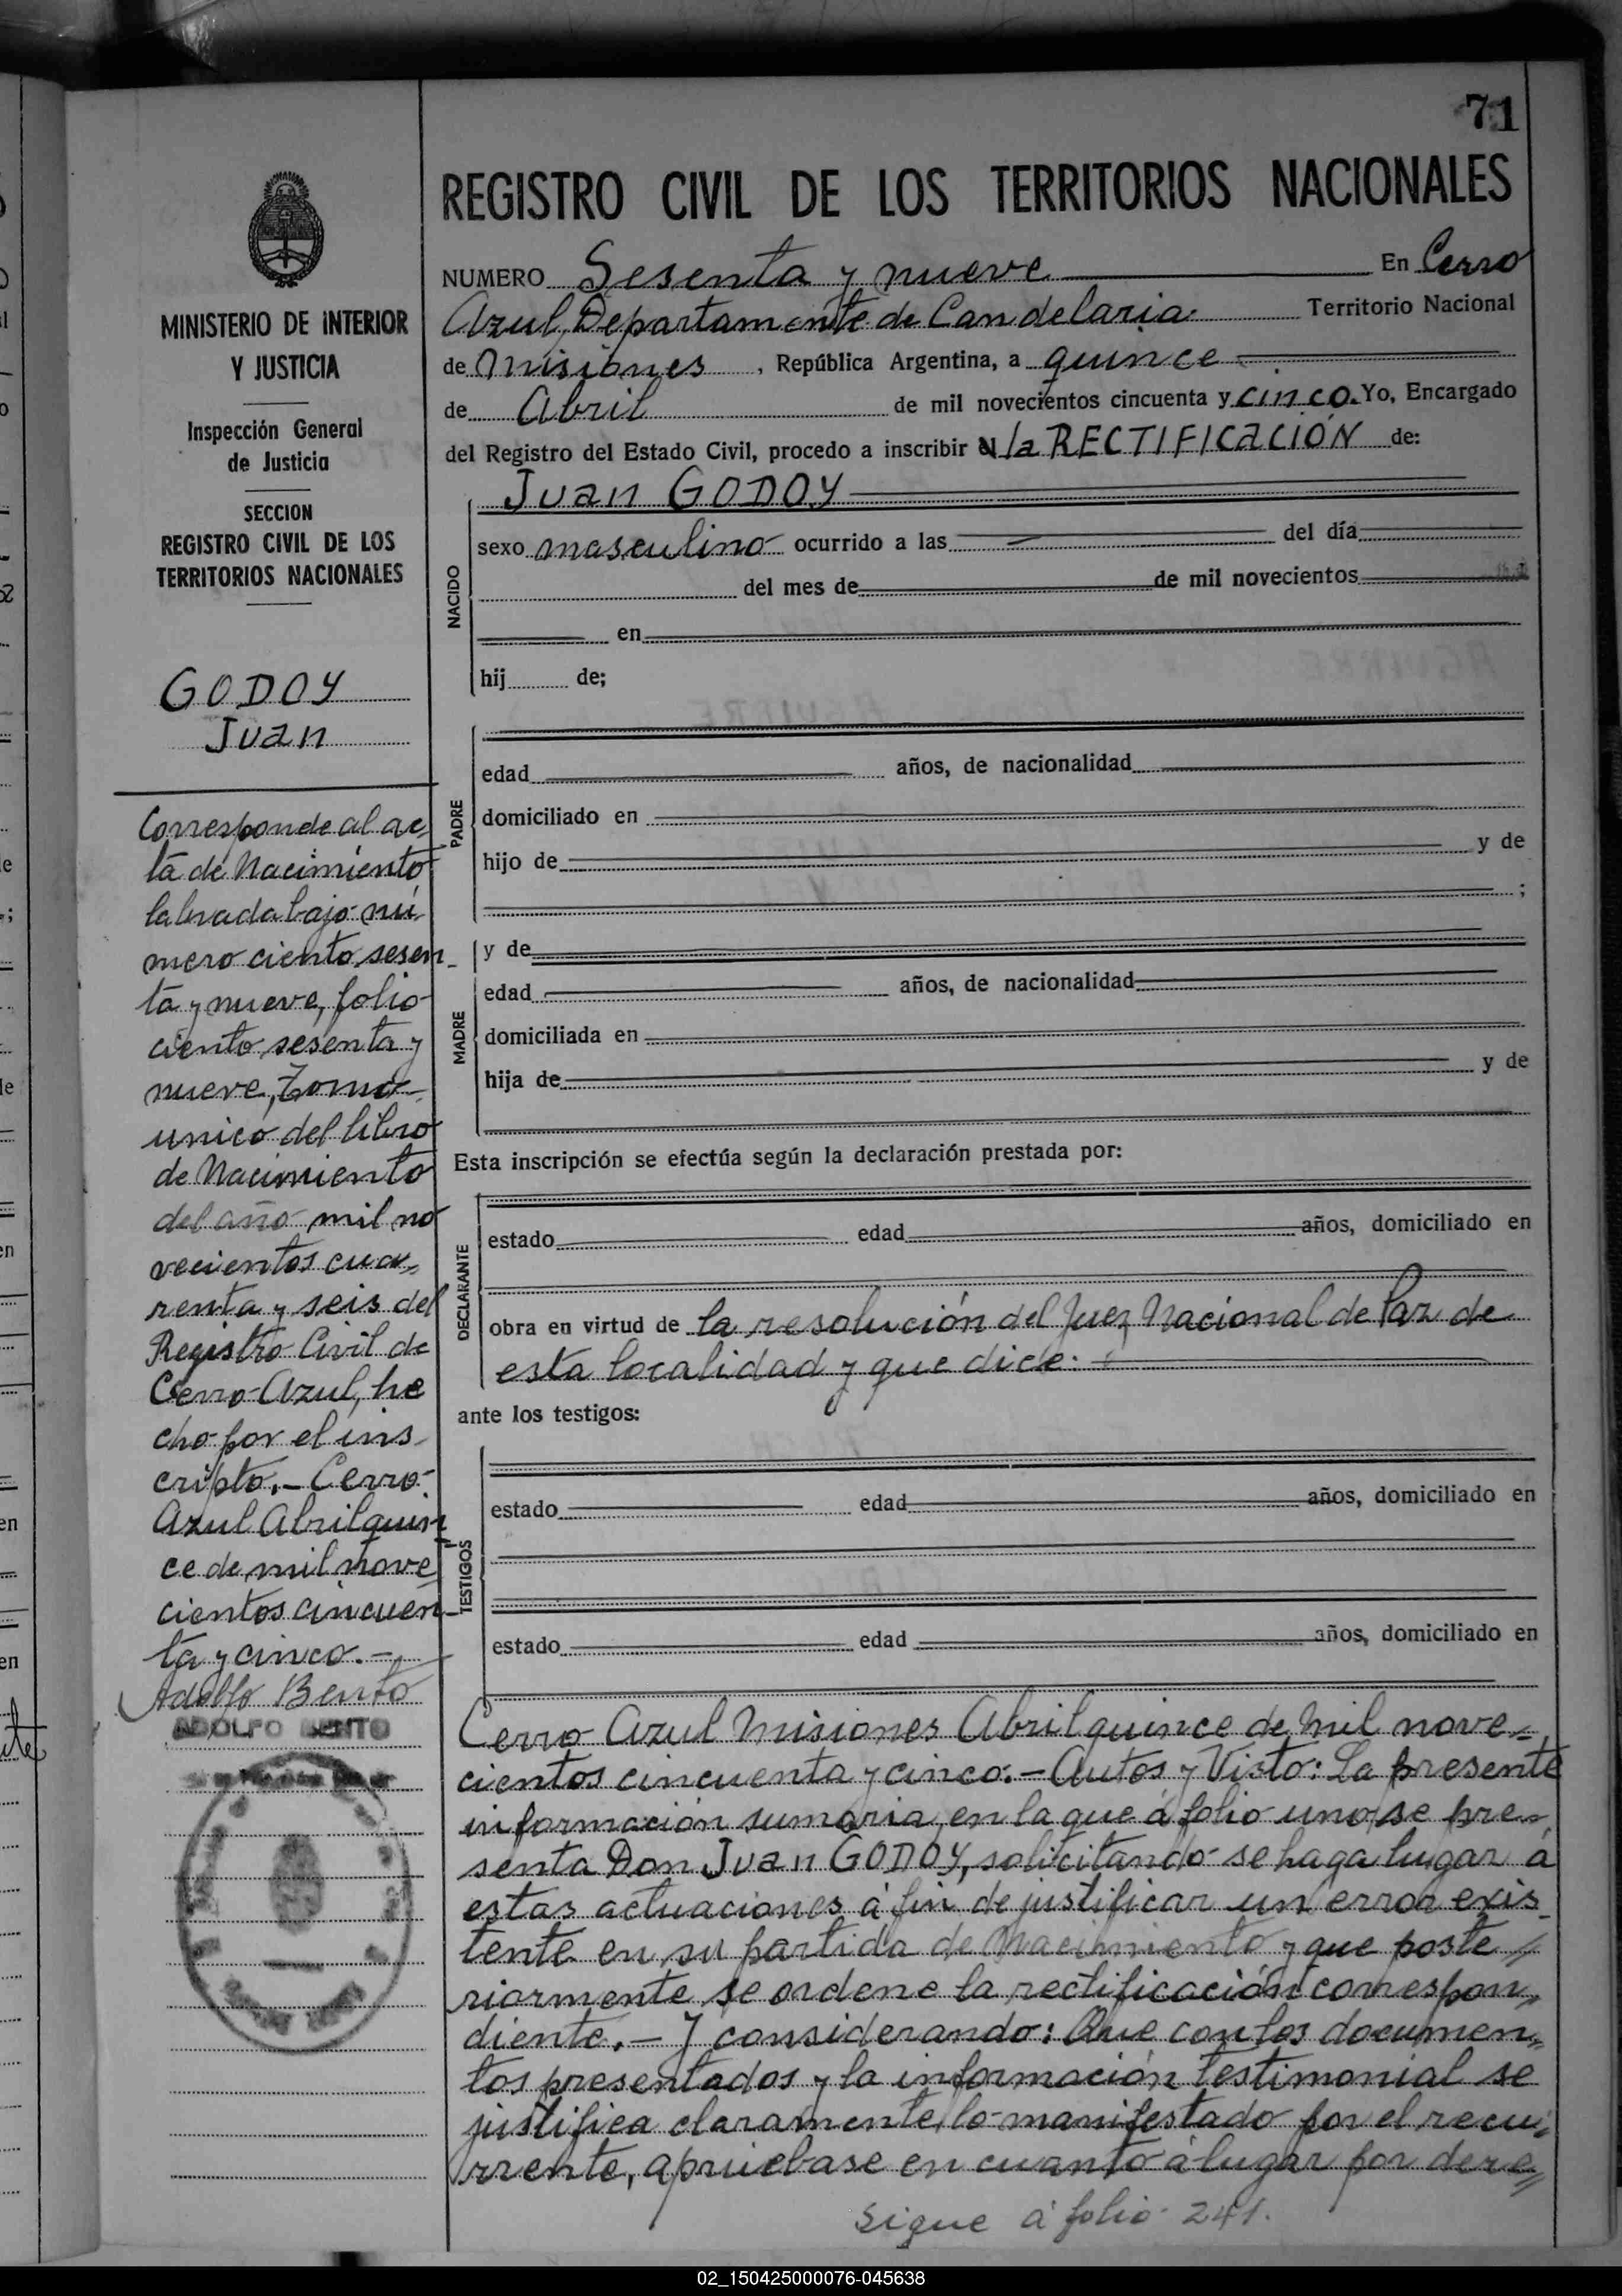 71
REGISTRO CIVIL DE LOS TERRITORIOS NACIONALES
MINISTERIO DE INTERIOR
Y JUSTICIA
Inspección General
de Justicia
SECCION
REGISTRO CIVIL DE LOS
TERRITORIOS NACIONALES
GODOY
Juan
Corresponde al ac,
ta de Nacimiento
labrada bajo nú
mero ciento sesen_
ta y nueve, folio
ciento sesenta y
nueve, Tomo
unico del libro
de Nacimiento
del año mil no
vecientos cua,,
renta y seis del
Registro Civil de
Cerro Azul, he
cho por el ins_
cripto.- Cerro
Azul Abril quin
ce de mil nove
cientos cincuen_
ta y cinco.-
Adolfo Bento
ADOLFO BENTO
NUMERO Sesenta y nueve En Cerro
Azul, Departamente de Candelaria Territorio Nacional
de Misiones, República Argentina, a quince
de Abril de mil novecientos cincuenta y cinco. Yo, Encargado
del Registro del Estado Civil, procedo a inscribir la RECTIFICACIÓN de:
Juan GODOY
NACIDO
sexo masculino ocurrido a las del día
del mes de de mil novecientos
en
hij de;
PADRE
edad años, de nacionalidad
domiciliado en
hijo de y de
;
MADRE
y de
edad años, de nacionalidad
domiciliada en
hija de y de
Esta inscripción se efectúa según la declaración prestada por:
DECLARANTE
estado edad años, domiciliado en
obra en virtud de la resolución del Juez Nacional de Paz de
esta localidad y que dice:
ante los testigos:
TESTIGOS
estado edad años, domiciliado en
estado edad años, domiciliado en
Cerro Azul Misiones Abril quince de mil nove=
cientos cincuenta y cinco.- Autos y Visto: La presente
información sumaria, en la que á folio uno, se pre,
senta Don Juan GODOY, solicitando se haga lugar á
estas actuaciones á fin de justificar un error exis_
tente en su partida de Nacimiento y que poste/
riormente se ordene la rectificación correspon,,
diente.- Y considerando: Que con los documen,,
tos presentados y la información testimonial se
justifica claramente lo manifestado por el recu,,
rrente, apruebase en cuanto á lugar por dere,,
Sigue á folio 241.
02_150425000076-045638